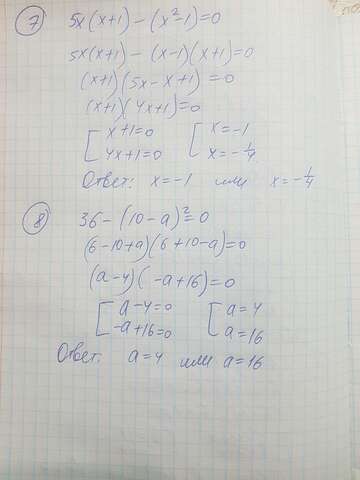 7) 5x(x+1) - (x²-1)=0
5x(x+1) - (x-1)(x+1)=0
(x+1)(5x-x+1)=0
(x+1)(4x+1)=0
[ x+1=0 [ x=-1
4x+1=0 x=-1/4
Ответ: x=-1 или x=-1/4
8) 36-(10-a)²=0
(6-10+a)(6+10-a)=0
(a-4)(-a+16)=0
[ a-4=0 [ a=4
-a+16=0 a=16
Ответ: a=4 или a=16